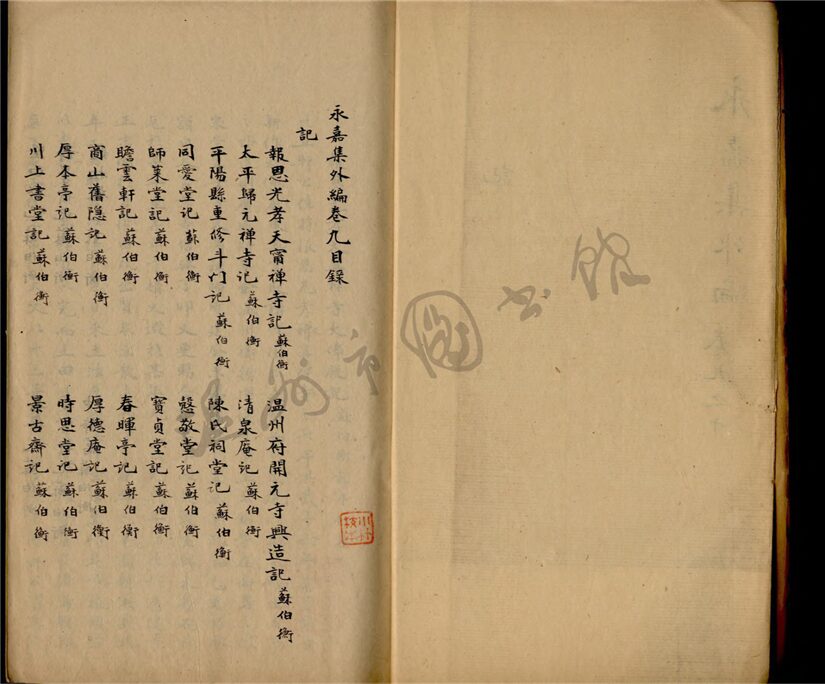 永嘉集外編卷九目錄
記
報恩光孝天甯禪寺記 蘇伯衡 温州府開元寺興造記 蘇伯衡
太平歸元禪寺記 蘇伯衡 清泉庵記 蘇伯衡
平陽縣重修斗門記 蘇伯衡 陳氏祠堂記 蘇伯衡
同愛堂記 蘇伯衡 慤敬堂記 蘇伯衡
師萊堂記 蘇伯衡 寶貞堂記 蘇伯衡
瞻雲軒記 蘇伯衡 春暉亭記 蘇伯衡
商山舊隱記 蘇伯衡 厚德庵記 蘇伯衡
厚本亭記 蘇伯衡 時思堂記 蘇伯衡
川上書堂記 蘇伯衡 景古齋記 蘇伯衡
温州市圖书館